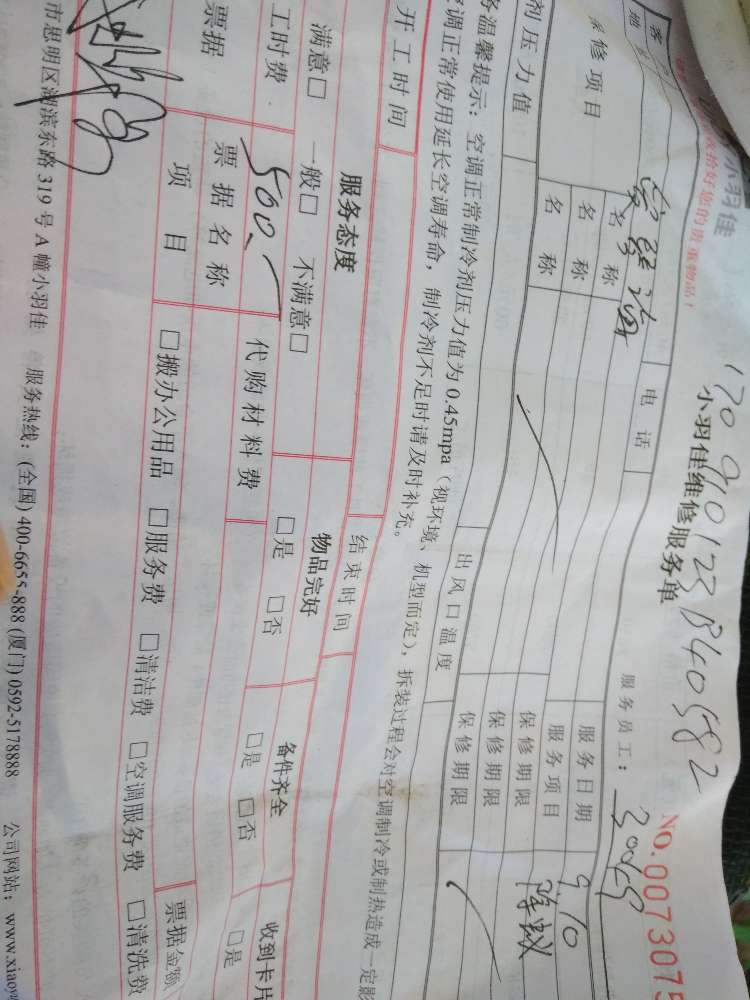 小羽佳
收拾好您的贵重物品！
小羽佳维修服务单
NO.007307
服务员工：
电话
服务日期 9.10
保修项目
名称
服务项目
名称
保修期限
名称
保修期限
剂压力值
出风口温度
保修期限
温馨提示：空调正常制冷剂压力值为0.45mpa（视环境、机型而定），拆装过程会对空调制冷或制热造成一定影
调正常使用延长空调寿命，制冷剂不足时请及时补充。
开工时间
结束时间
服务态度
物品完好
备件齐全
收到卡片
满意□ 一般□ 不满意□
□是 □否
□是 □否
□是
工时费 500.
代购材料费
票据
票据名称
票据金额
项目
□搬办公用品 □服务费 □清洁费 □空调服务费 □清洗费
市思明区湖滨东路319号A幢小羽佳
服务热线：(全国) 400-6655-888 (厦门) 0592-5178888
公司网站：www.xiaoy